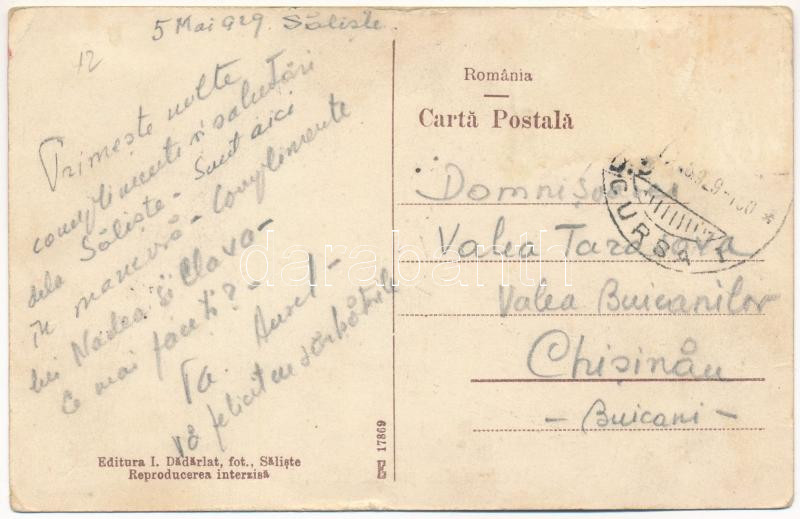 5 Mai 929. Săliște.
12
Primește multe
complimente și salutări
dela Săliște - Sunt aici
în manevră - Complimente
lui Nadea și Clava -
Ce mai faceți? -
Ta. Aurel -
Vă felicit cu sărbătorile
Editura I. Dădărlat, fot., Săliște
Reproducerea interzisă
E 17869
România
Cartă Postală
CURSA I
Domnișoarei
Valea
Valea Buicanilor
Chișinău
- Buicani -
darabanth